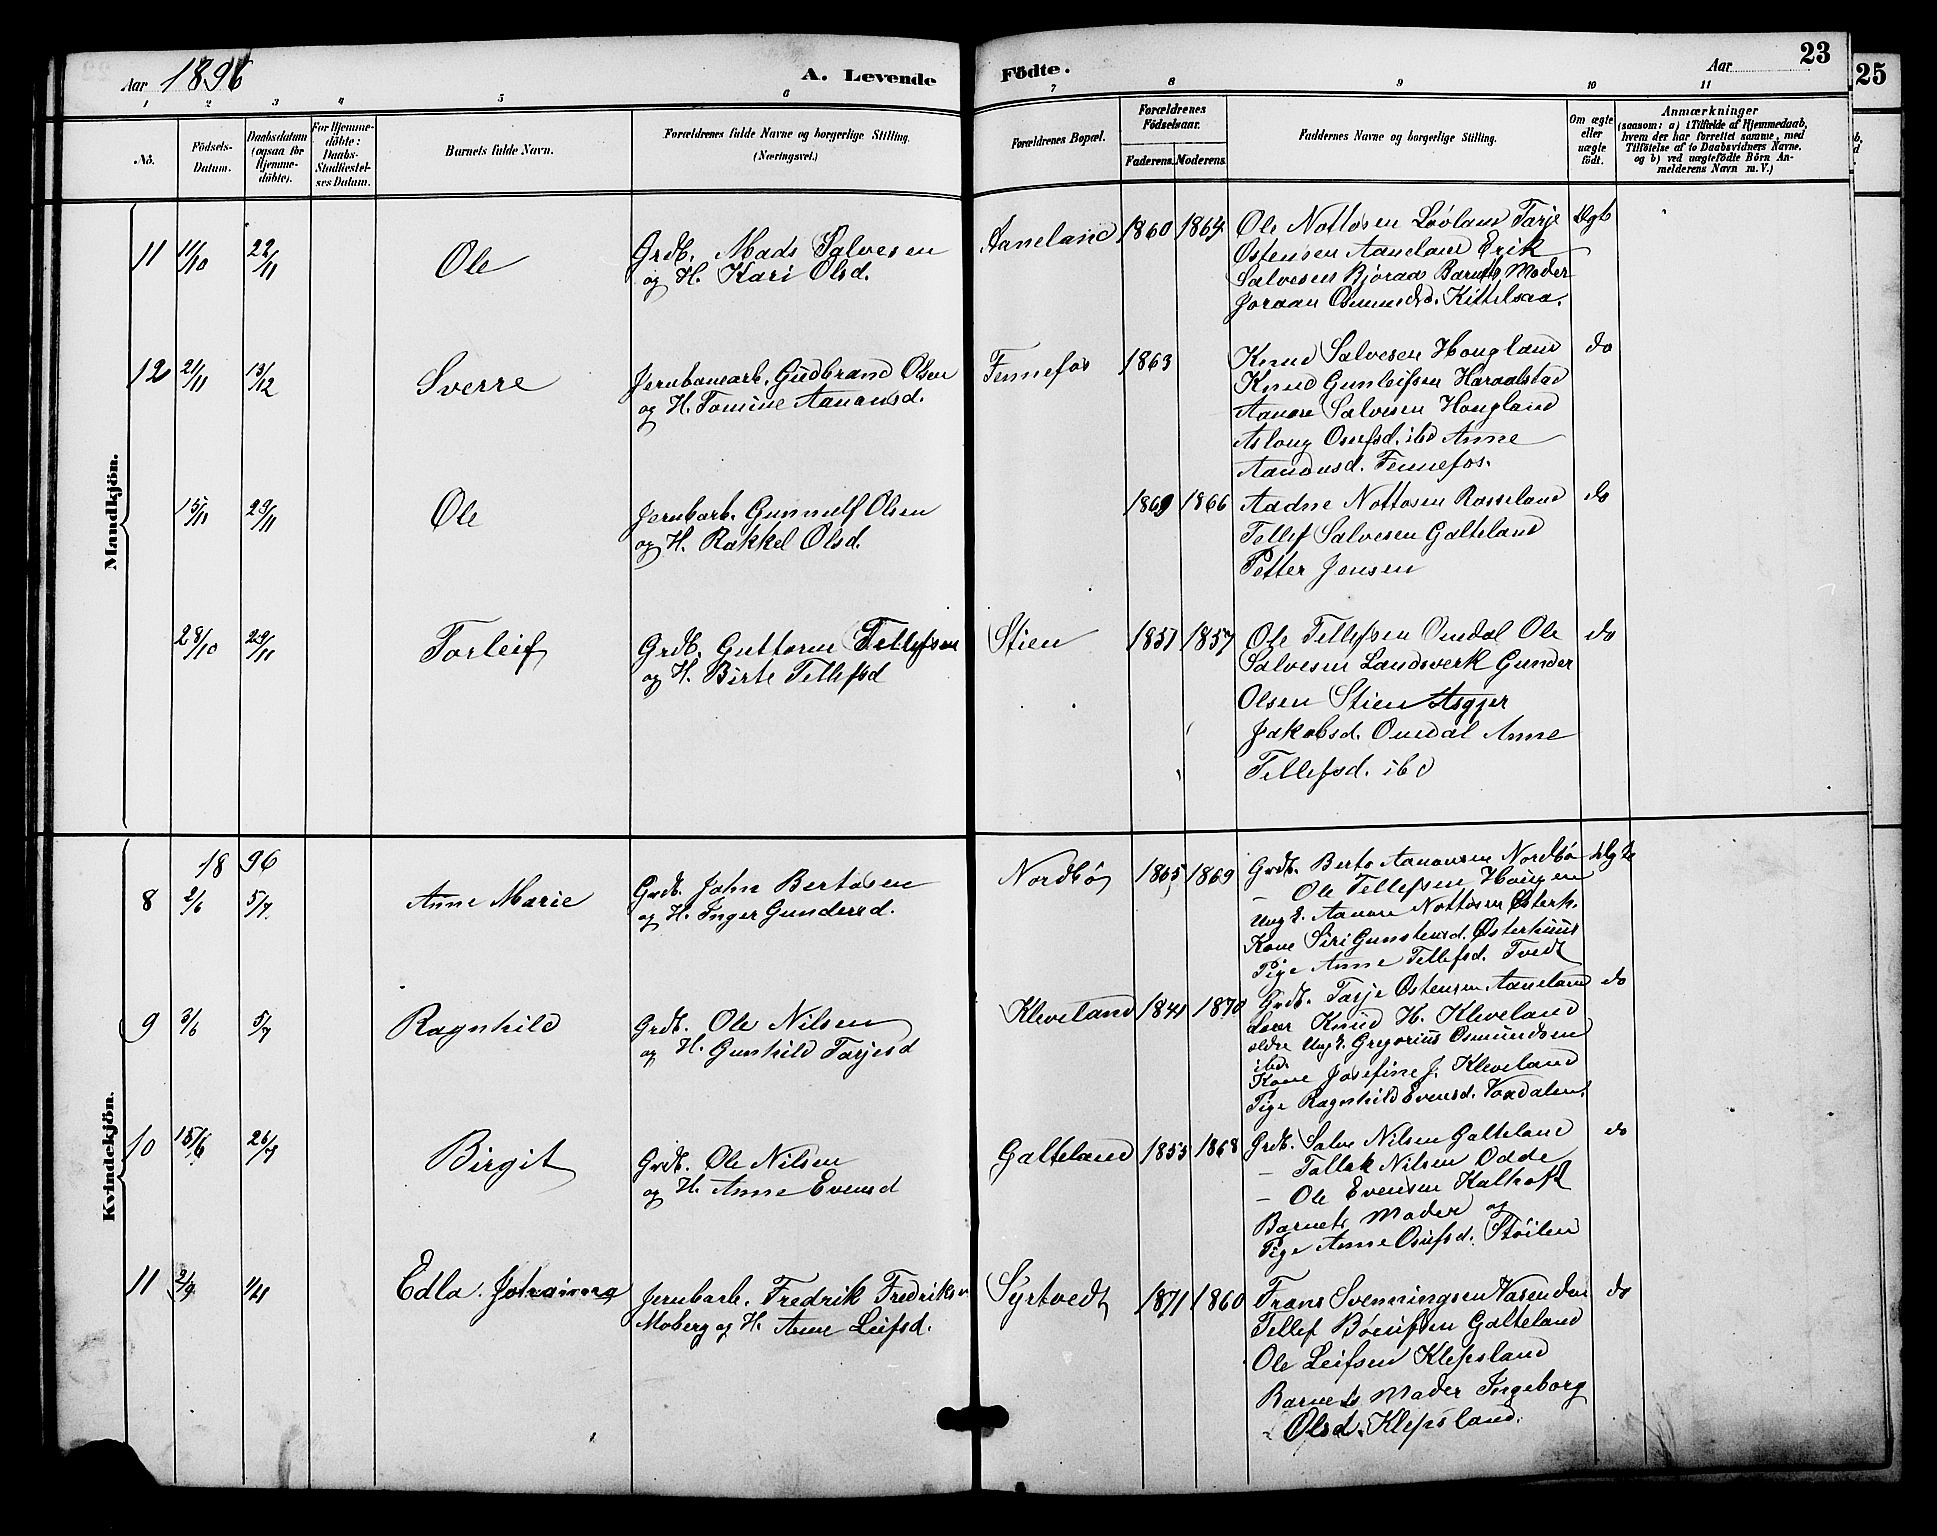 Aar 1896
A. Levende Födte.
Aar
23
25
1 2 3 4 5 6 7 8 9 10 11
No.
Födsels-Datum.
Daabsdatum (ogsaa for Hjemme-döbte).
For Hjemme-döbte: Daabs-Stadfæstel-ses Datum.
Barnets fulde Navn.
Forældrenes fulde Navne og borgerlige Stilling. (Næringsvei.)
Forældrenes Bopæl.
Forældrenes Födselsaar.
Faderens. Moderens.
Faddernes Navne og borgerlige Stilling.
Om ægte eller uægte födt.
Anmærkninger
(saasom: a) i Tilfælde af Hjemmedaab, hvem der har forrettet samme, med Tilföielse af to Daabsvidners Navne, og b) ved uægtefödte Börn Anmelderens Navn m. V.)
Mandkjön.
11 11/10 22/11 Ole
Grdb. Mads Salvesen
og H. Kari Olsd.
Aaneland 1860 1864
Ole Nottosen Løvland Tarje
Ostensen Aaneland Erik
Salvesen Bjoraas Barnets Moder
Joraan Osmundsd. Kittelsaa.
Ægte
12 2/11 13/12 Sverre
Jernbanearb. Gudbrand Olsen
og H. Tomine Aanonsd.
Fennefos 1863
Knud Salvesen Hougland
Knud Gunleifsen Haraalstad
Aanon Salvesen Hougland
Asloug Osufsd. ibd Anne
Aanonsd. Fennefos.
do
15/11 29/11 Ole
Jernbarb. Gunnulf Olsen
og H. Rakkel Olsd.
1869 1866
Aadne Nottosen Rosseland
Tellef Salvesen Galteland
Petter Jensen
do
28/10 29/11 Torleif
Grdb. Guttorm Tellefsen
og H. Birte Tellefsd
Stien 1851 1857
Ole Tellefsen Omdal Ole
Salvesen Landsverk Gunder
Olsen Stien Asgjer
Jakobsd. Omdal Anne
Tellefsd. ibd
do
Kvindekjön.
1896
8 2/6 5/7 Anne Marie
Grdb. John Bertosen
og H. Inger Gundersd.
Nordbø 1865 1869
Grdb. Berto Aanonsen Nordbø
– Ole Tellefsen Hougen
Ungk. Aanon Nottosen Østerh.
Kone Siri Gunstensd. Østerhuus
Pige Anne Tellefsd. Tvedt
Ægte
9 3/6 5/7 Ragnhild
Grdb. Ole Nilsen
og H. Gunhild Tarjesd
Kleveland 1841 1870
Grdb. Tarje Ostensen Aaneland
Lærer Knud H. Kleveland
ældre Ungk. Gregorius Osmundsen
ibd.
Kone Josefine J. Kleveland
Pige Ragnhild Evensd. Vaadalen.
do
10 15/6 26/7 Birgit
Grdb. Ole Nilsen
og H. Anne Evensd
Galteland 1853 1868
Grdb. Salve Nilsen Galteland
– Tallak Nilsen Odde
– Ole Evensen Kalhoft
Barnets Moder og
Pige Anne Osufsd. Støilen
do
11 2/9 1/11 Edla
Jernbarb. Fredrik Fredriksen
Moberg og H. Anne Leifsd.
Syrtvedt 1871 1860
Frans Svenningsen Vasenden
Tellef Bøeufsen Galteland
Ole Leifsen Klepsland
Barnets Moder Ingeborg
Olsd. Klepsland.
do